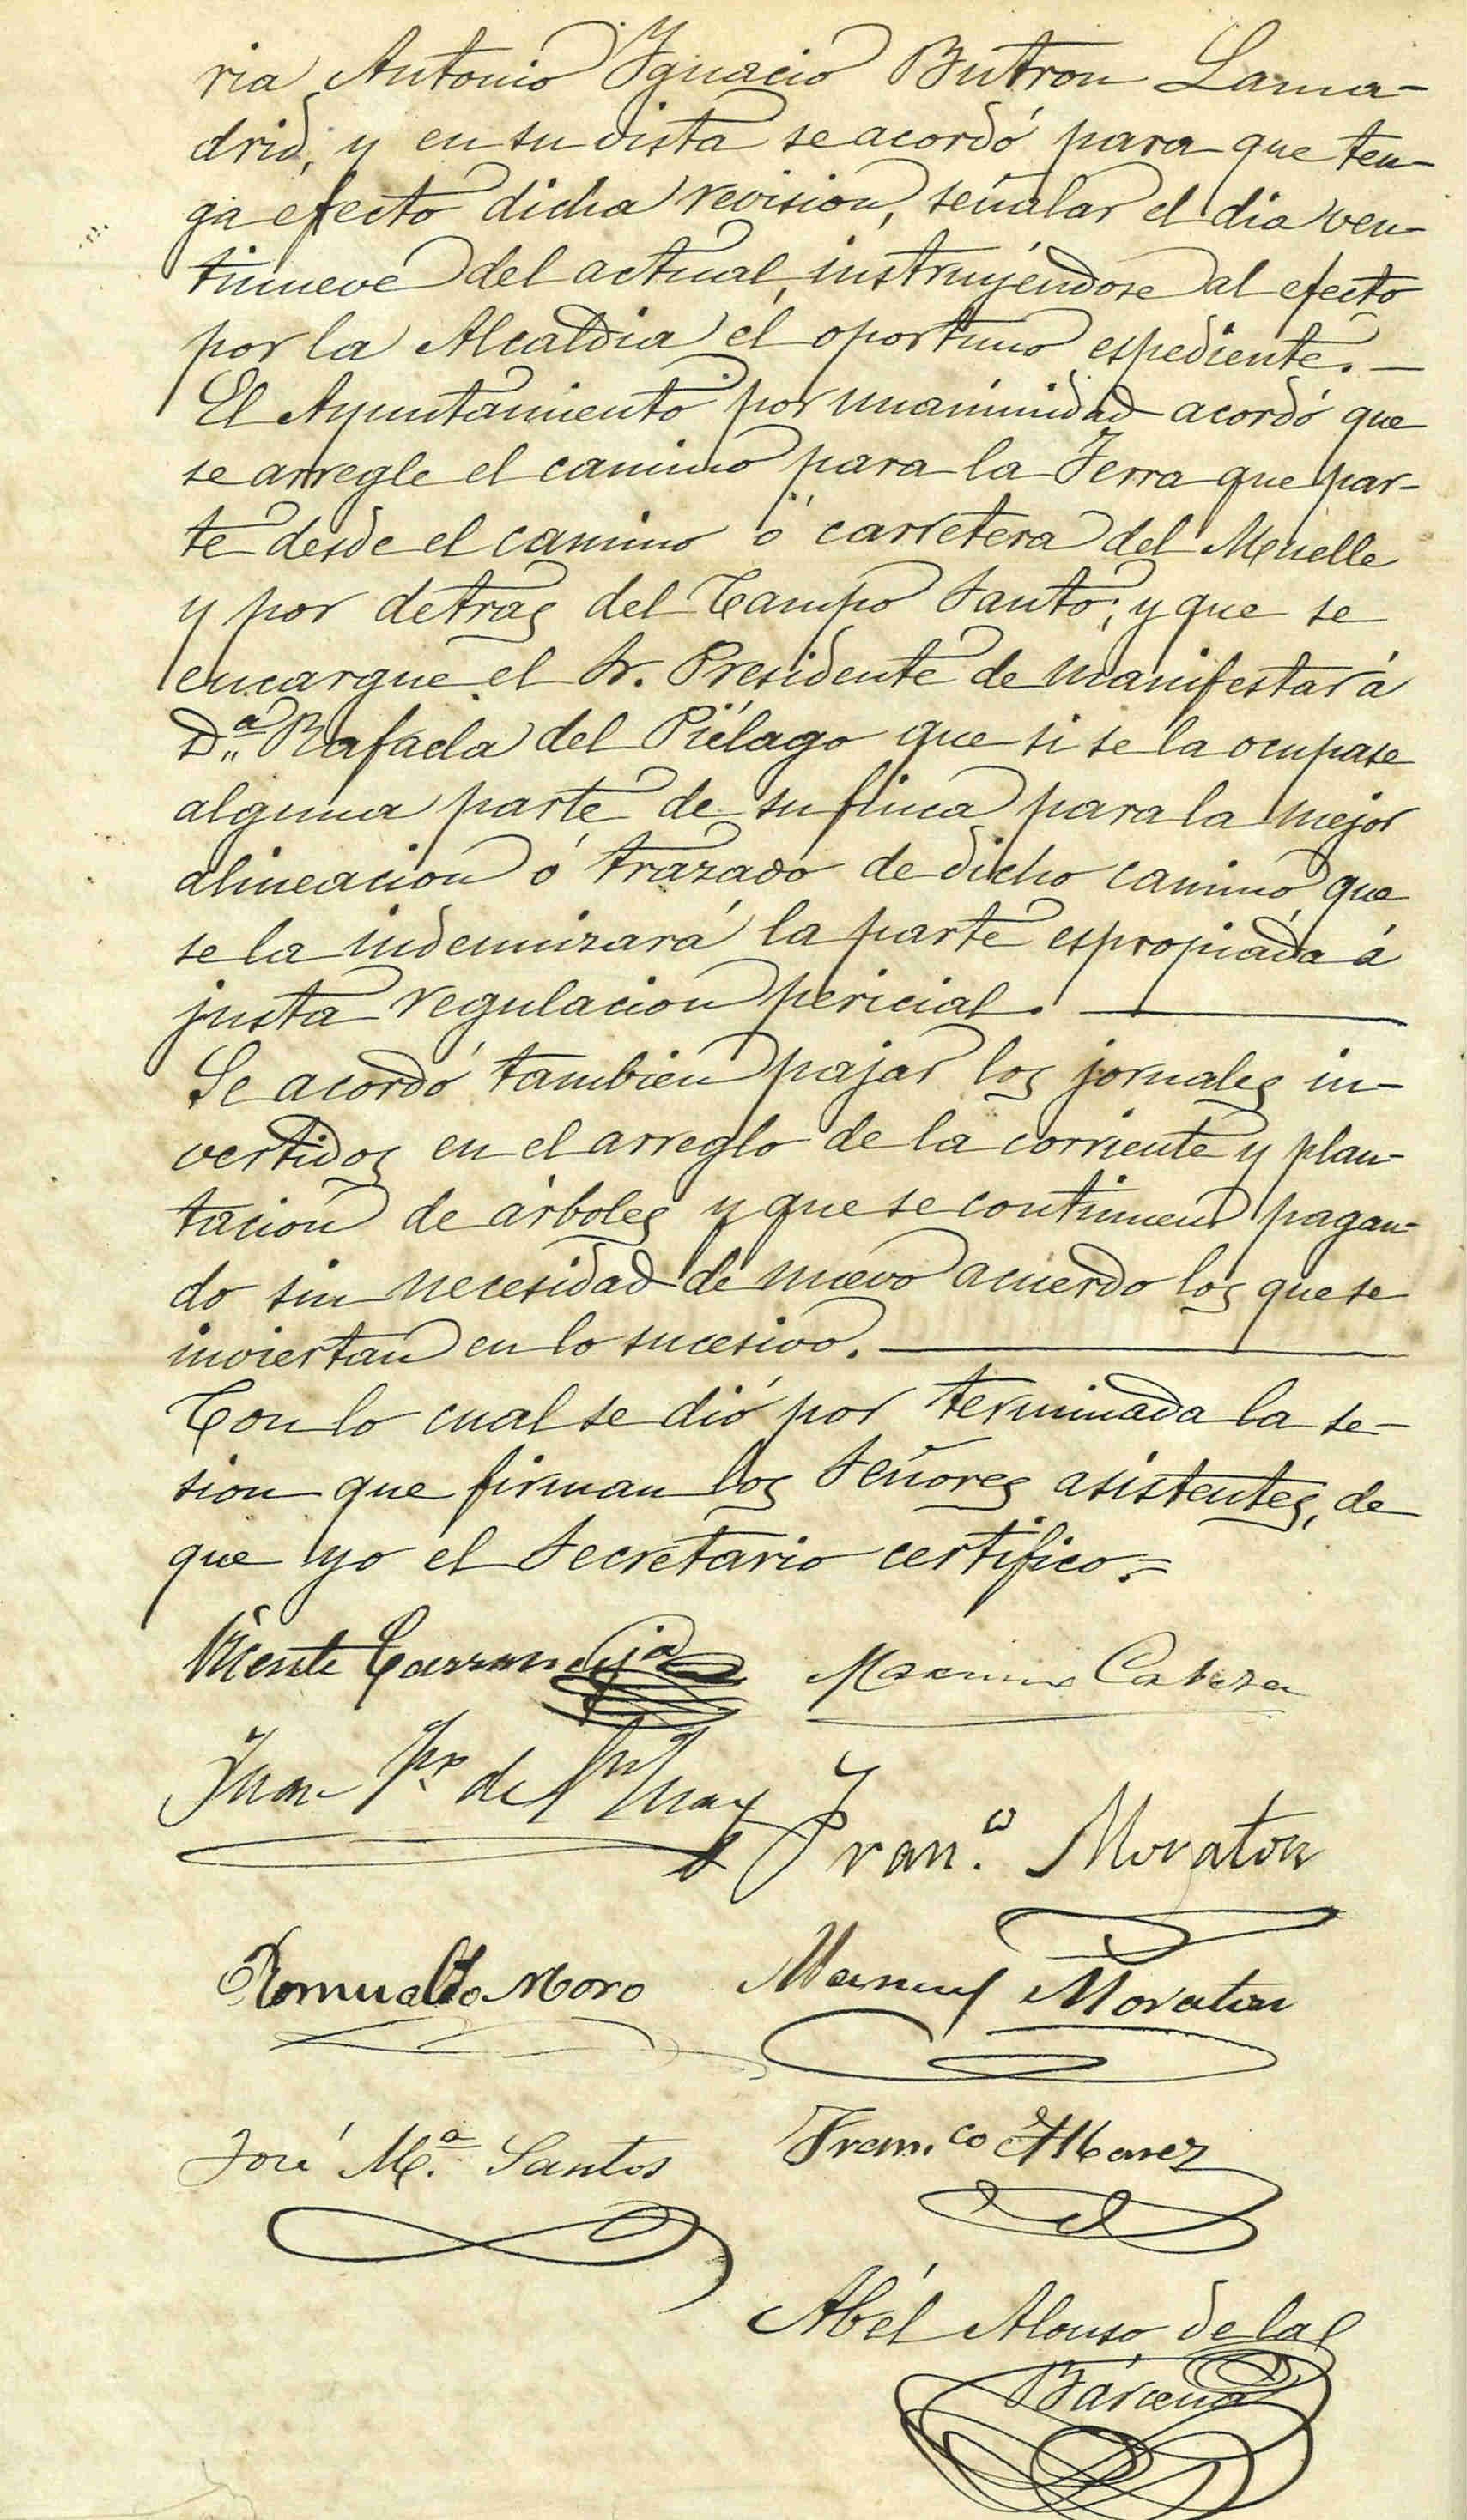 ria Antonio Ygnacio Butron Lama-
drid, y en su vista se acordó para que ten-
ga efecto dicha revision, señalar el dia ven-
tinueve del actual, instruyéndose al efecto
por la Alcaldia el oportuno espediente. —
El Ayuntamiento por unanimidad acordó que
se arregle el camino para la Ferra que par-
te desde el camino ó carretera del Muelle
y por detras del Campo Santo; y que se
encargue el Sr. Presidente de manifestar á
D.ª Rafaela del Piélago que si se la ocupase
alguna parte de su finca para la mejor
alineacion ó trazado de dicho camino, que
se la indemnizará la parte espropiada á
justa regulacion pericial. —
Se acordó tambien pajar los jornales in-
vertidos en el arreglo de la corriente y plan-
tacion de árboles y que se continuen pagan-
do sin necesidad de nuevo acuerdo los que se
inviertan en lo sucesivo. —
Con lo cual se dió por terminada la se-
sion que firman los Señores asistentes, de
que yo el Secretario certifico. =
Vicente Carranceja Maximo Cabeza
Juan de
Fran.co Moraton
Romualdo Moro Manuel Moraton
José M.ª Santos Fran.co Albarez
Abél Alonso de la
Bárcena